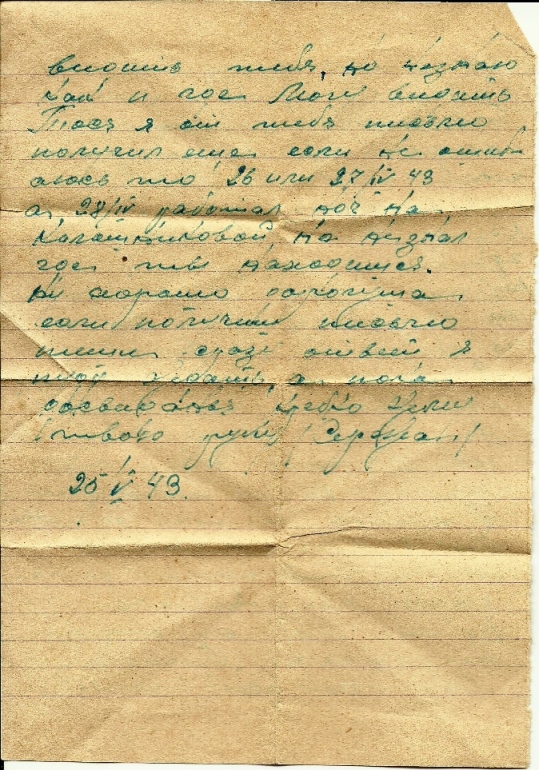 видить тебя, но незнаю
как и где Могу видить
Тося я от тебя письмо
получил еще если не ошиб
аюсь то 26 или 27/IV 43
а, 28/IV работал ноч на
Калашниковой но незнал
где ты находишся.
Ну хорошо дорогуша
если получиш письмо
пиши сразу ответ я
буду ждать, а пока
досвидания крепко жму
твою руку
25/V 43.